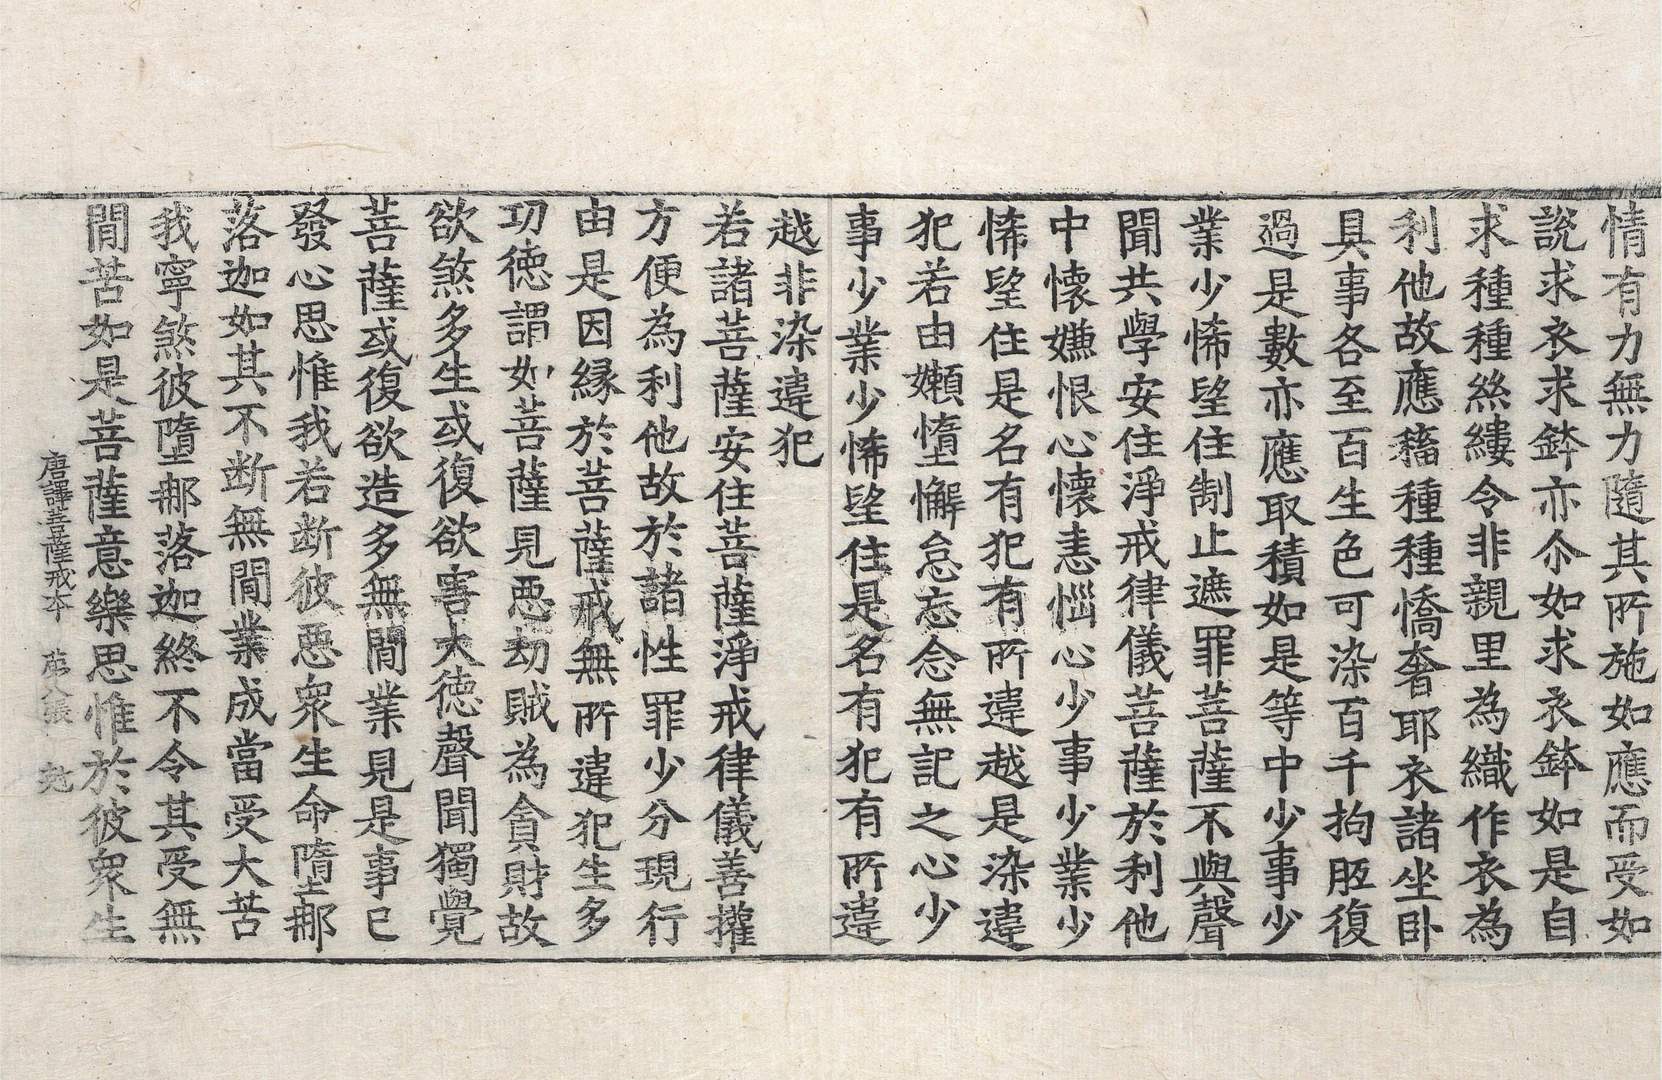 情有力無力隨其所施如應而受如
說求衣求鉢亦尒如求衣鉢如是自
求種種絲縷令非親里為織作衣為
利他故應穡種種憍奢耶衣諸坐卧
具事各至百生色可染百千拘胝復
過是數亦應取積如是等中少事少
業少悕望住制止遮罪菩薩不與聲
聞共學安住淨戒律儀菩薩於利他
中懷嫌恨心懷恚惱心少事少業少
悕望住是名有犯有所違越是染違
犯若由嬾墮懈怠忘念無記之心少
事少業少悕望住是名有犯有所違
越非染違犯
若諸菩薩安住菩薩淨戒律儀善權
方便為利他故於諸性罪少分現行
由是因緣於菩薩戒無所違犯生多
功德謂如菩薩見惡劫賊為貪財故
欲煞多生或復欲害大德聲聞獨覺
菩薩或復欲造多無間業見是事已
發心思惟我若断彼惡衆生命墮那
落迦如其不断無間業成當受大苦
我寧煞彼墮那落迦終不令其受無
間苦如是菩薩意樂思惟於彼衆生
唐譯菩薩戒本 第八張